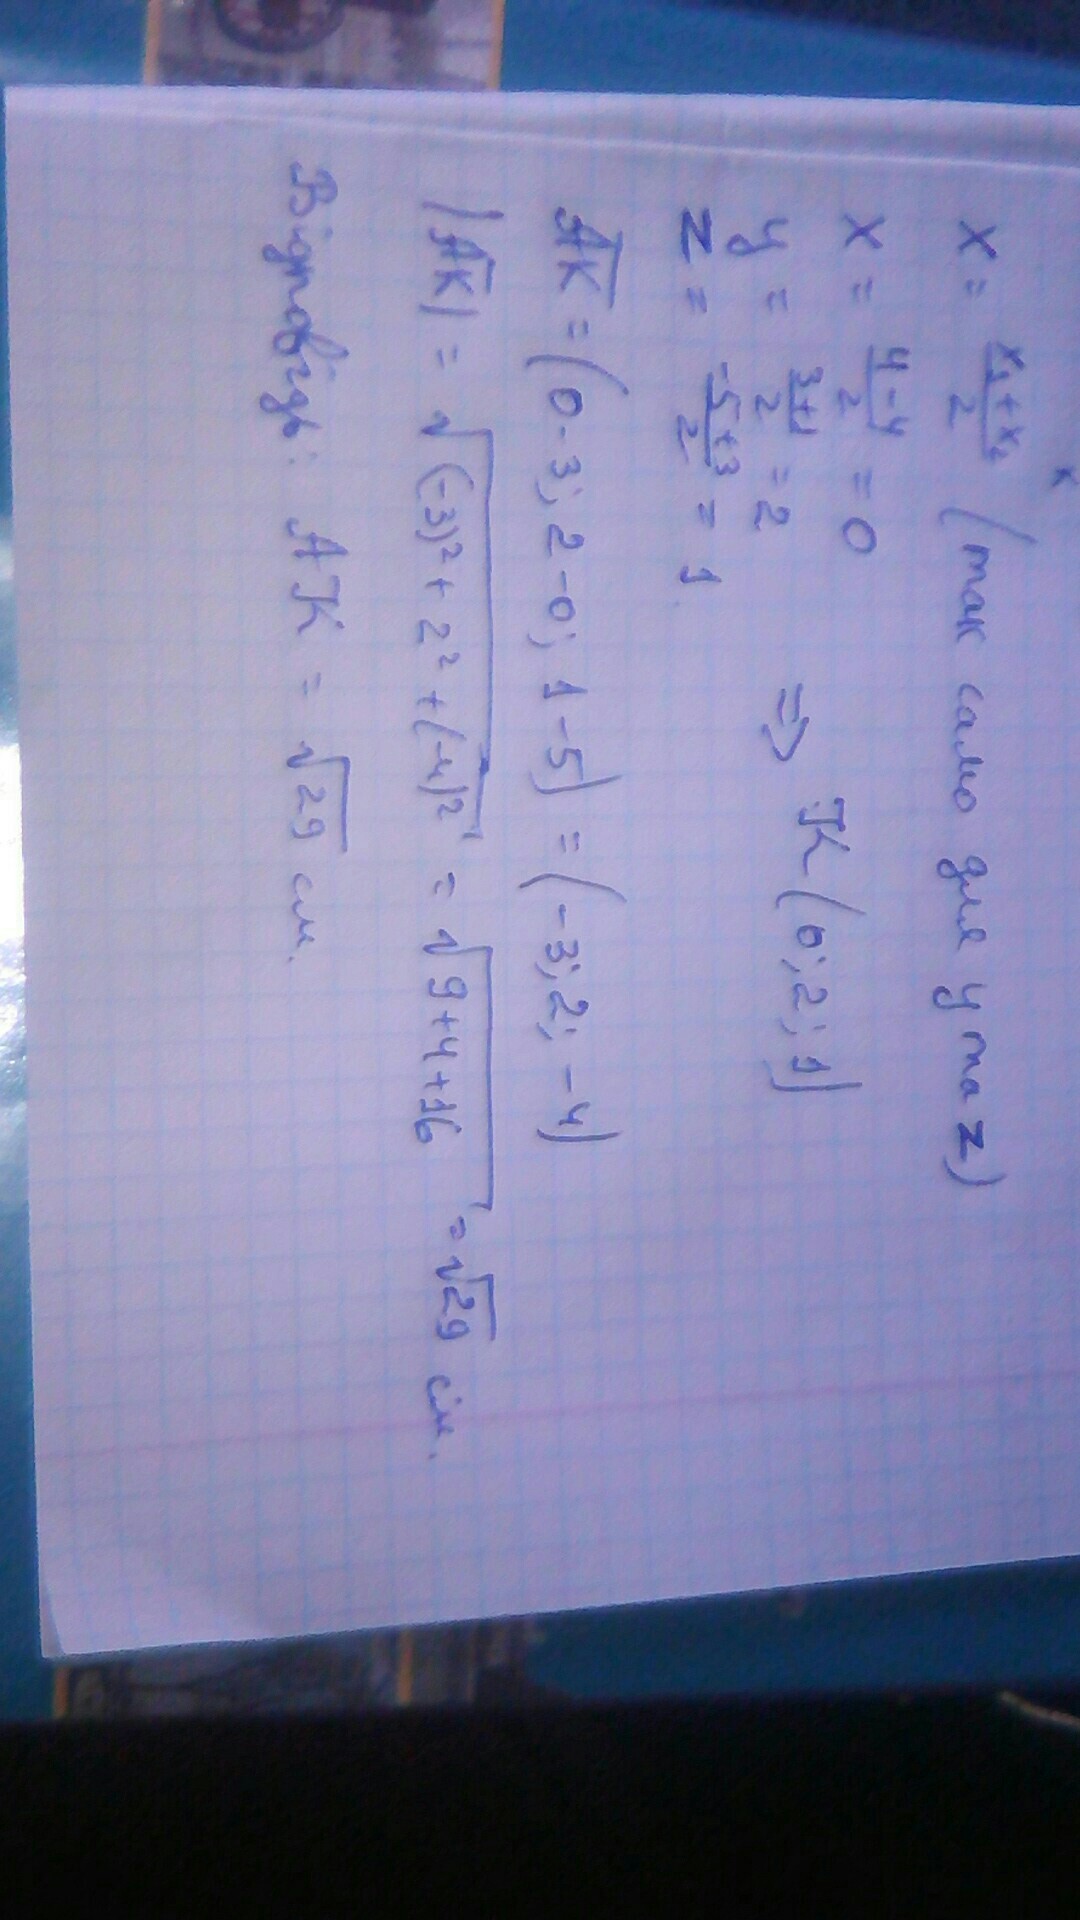 K
x = \frac{x_1 + x_2}{2} (так само для y та z)
x = \frac{4-4}{2} = 0
y = \frac{3+1}{2} = 2 ⇒ K(0; 2; 1)
z = \frac{-5+3}{2} = 1
\overline{AK} = (0-3; 2-0; 1-5) = (-3; 2; -4)
|\overline{AK}| = \sqrt{(-3)^2 + 2^2 + (-4)^2} = \sqrt{9+4+16} = \sqrt{29} см.
Відповідь: AK = \sqrt{29} см.